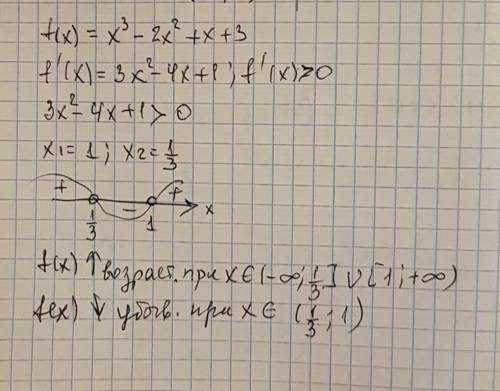 f(x) = x³ - 2x² + x + 3
f'(x) = 3x² - 4x + 1 ; f'(x) > 0
3x² - 4x + 1 > 0
x₁ = 1 ; x₂ = 1/3
+ - +
1/3 1 x
f(x) ↑ возраст. при x ∈ (-∞; 1/3] ∪ [1; +∞)
f(x) ↓ убыв. при x ∈ (1/3; 1)